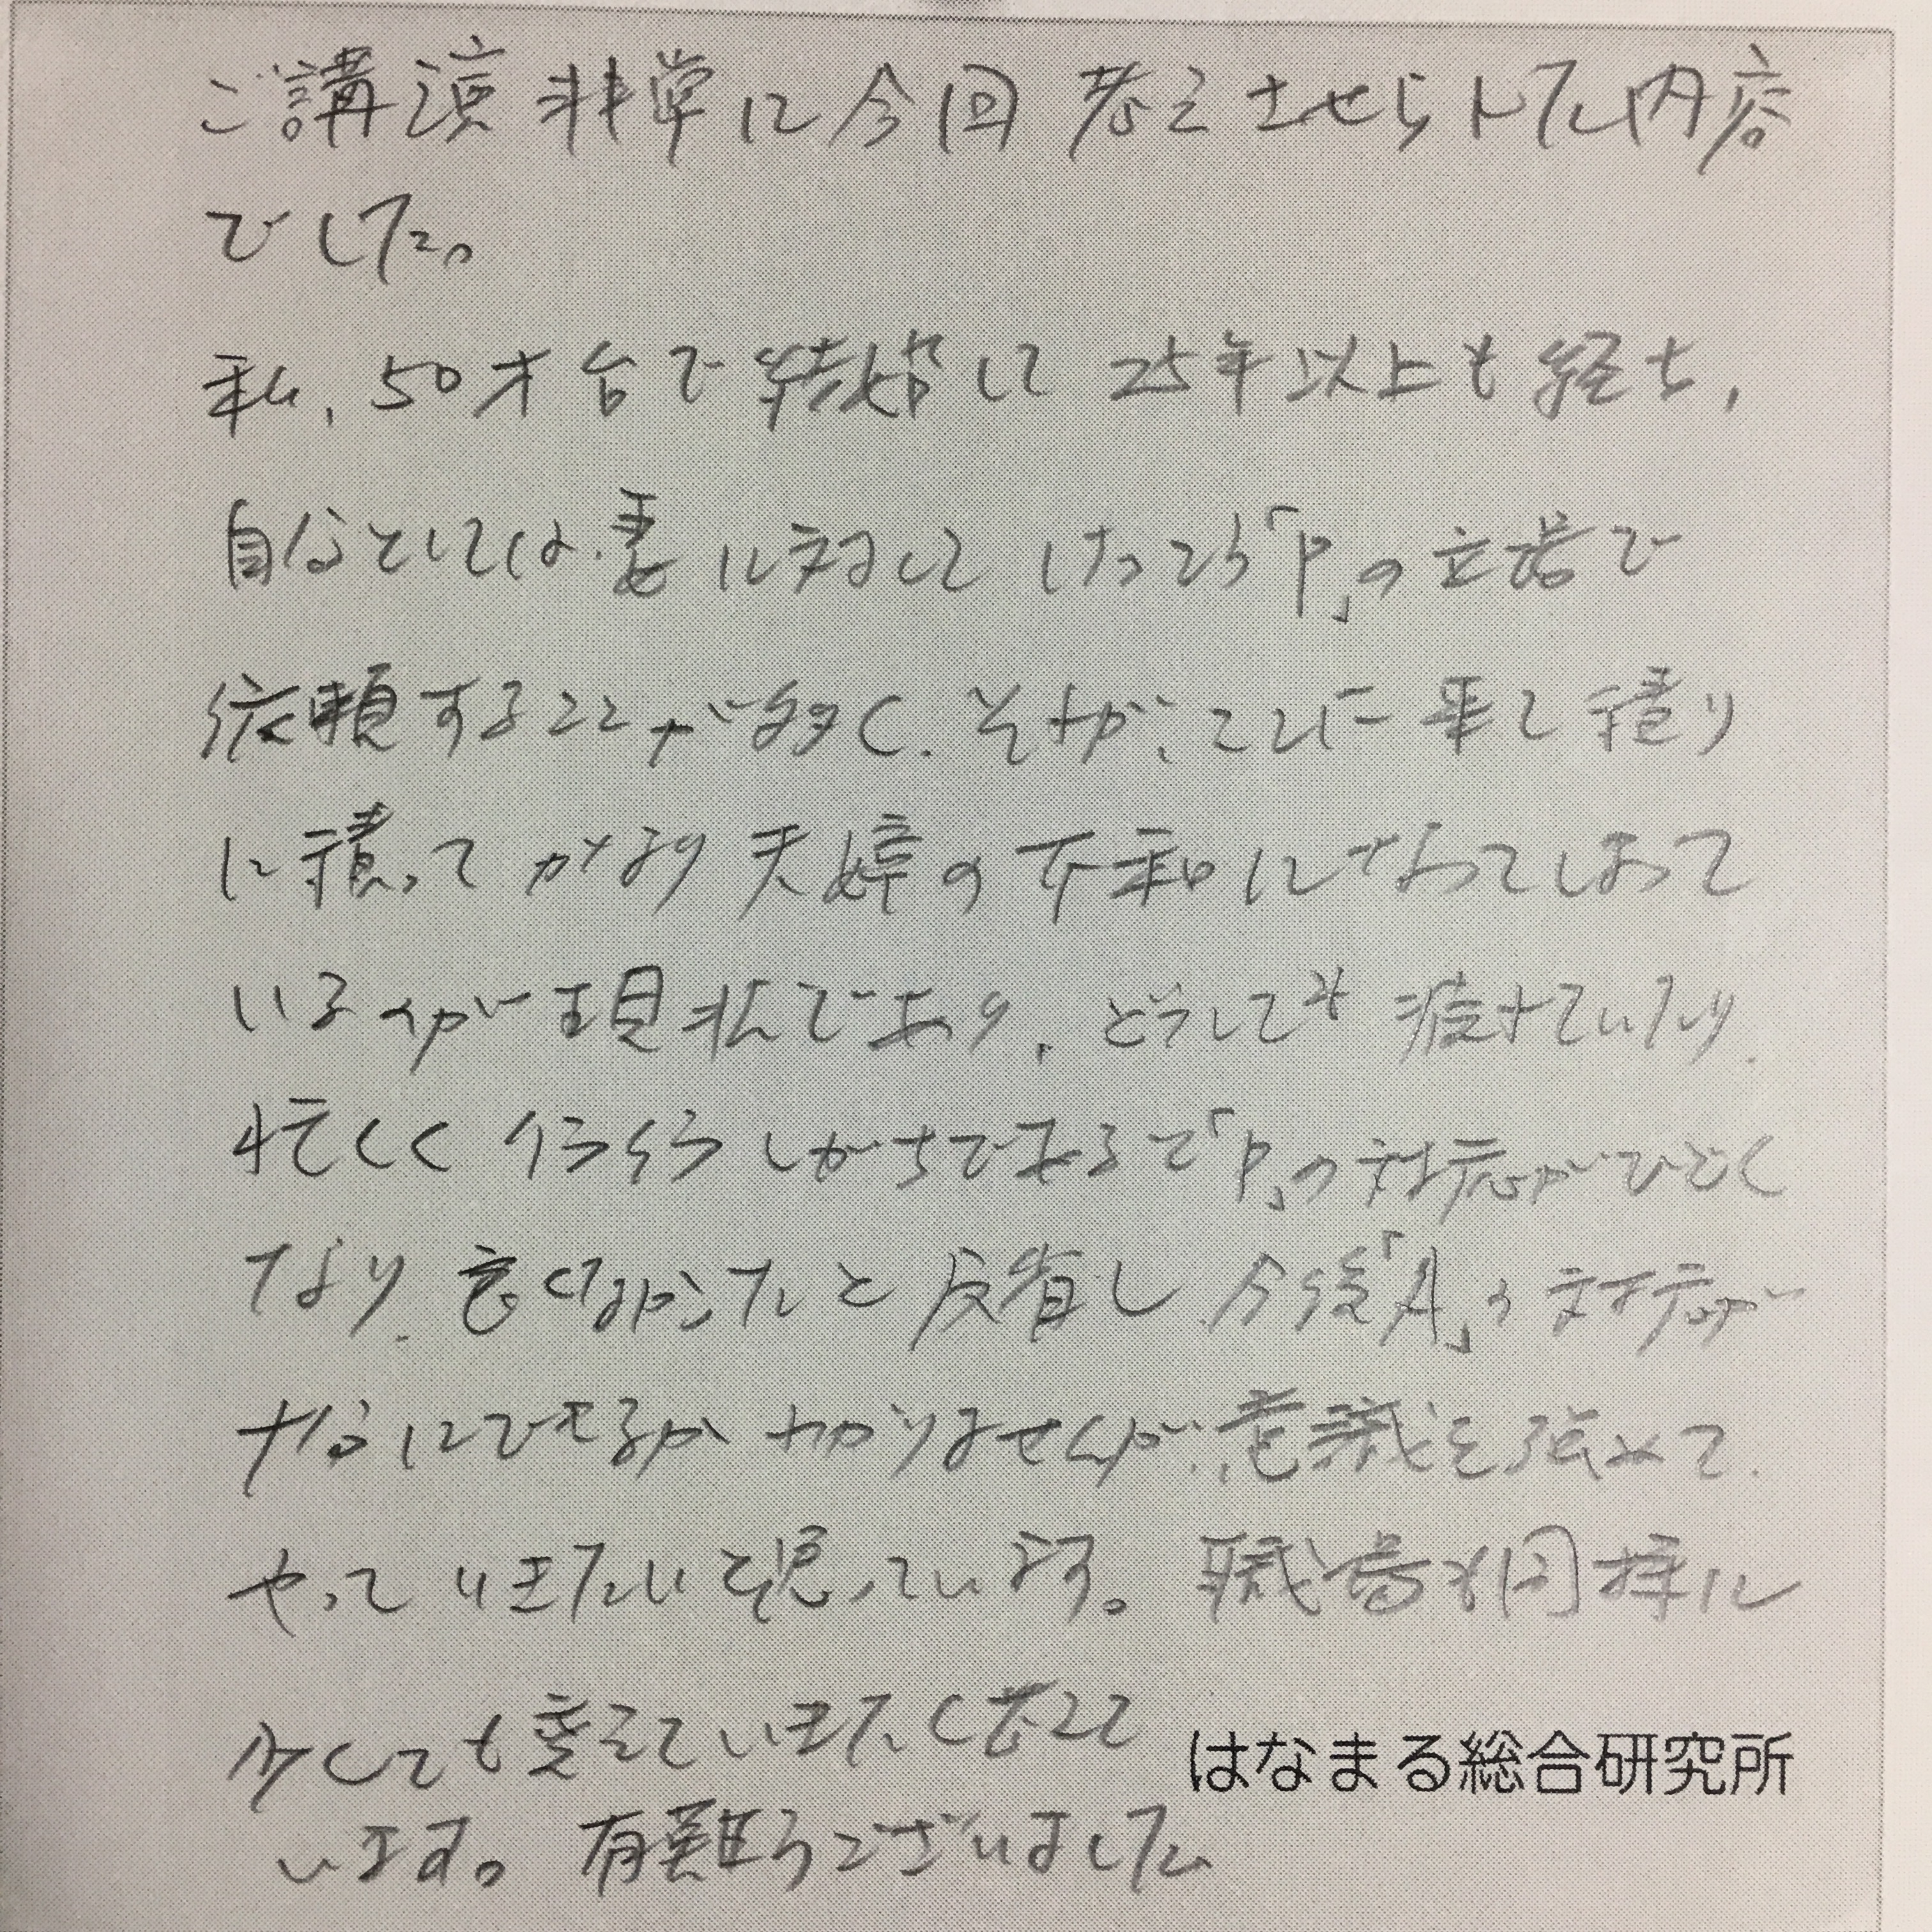 ご講演非常に今回考えさせられた内容
でした。
私、50才台で結婚して25年以上も経ち、
自分としては妻に対してけっこう「P」の立場で
依頼することが多く、それが、こと 積り
に積ってかなり夫婦の不和になってしまって
いるのが現状であり、どうしても疲れていたり、
忙しく イライラしがちであるで「P」の対応がひどく
なり、良くなかったと反省し、今後「A」の対応が
十分にできるかわかりませんが、意識を強めて、
やっていきたいと思っています。職場も同様に
少しでも変えていきたく考えて
います。有難うございました
はなまる総合研究所